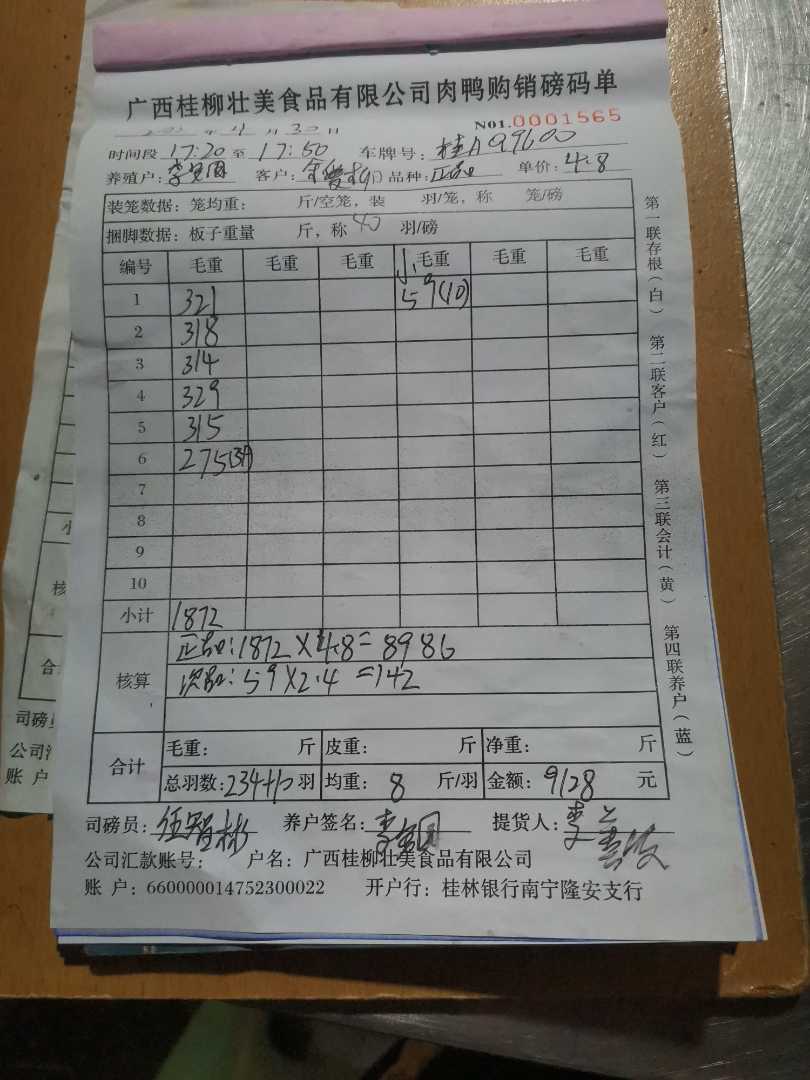 广西桂柳壮美食品有限公司肉鸭购销磅码单
年 4 月 30 日 N01.0001565
时间段 17:20 至 17:50 车牌号: 桂A Q9600
养殖户: 客户: 品种: 正品 单价: 4.8
装笼数据: 笼均重: 斤/空笼, 装 羽/笼, 称 笼/磅
捆脚数据: 板子重量 斤, 称 40 羽/磅
编号 毛重 毛重 毛重 小毛重 毛重 毛重
1 321 59(10)
2 318
3 314
4 329
5 315
6 275(34)
7
8
9
10
小计 1872
核算 正品: 1872×4.8=8986
次品: 59×2.4=142
合计 毛重: 斤 皮重: 斤 净重: 斤
总羽数: 234+10 羽 均重: 8 斤/羽 金额: 9128 元
司磅员: 伍智彬 养户签名: 提货人:
公司汇款账号: 户名: 广西桂柳壮美食品有限公司
账 户: 660000014752300022 开户行: 桂林银行南宁隆安支行
第一联存根(白) 第二联客户(红) 第三联会计(黄) 第四联养户(蓝)
小
核
合
司磅员
公司汇
账 户